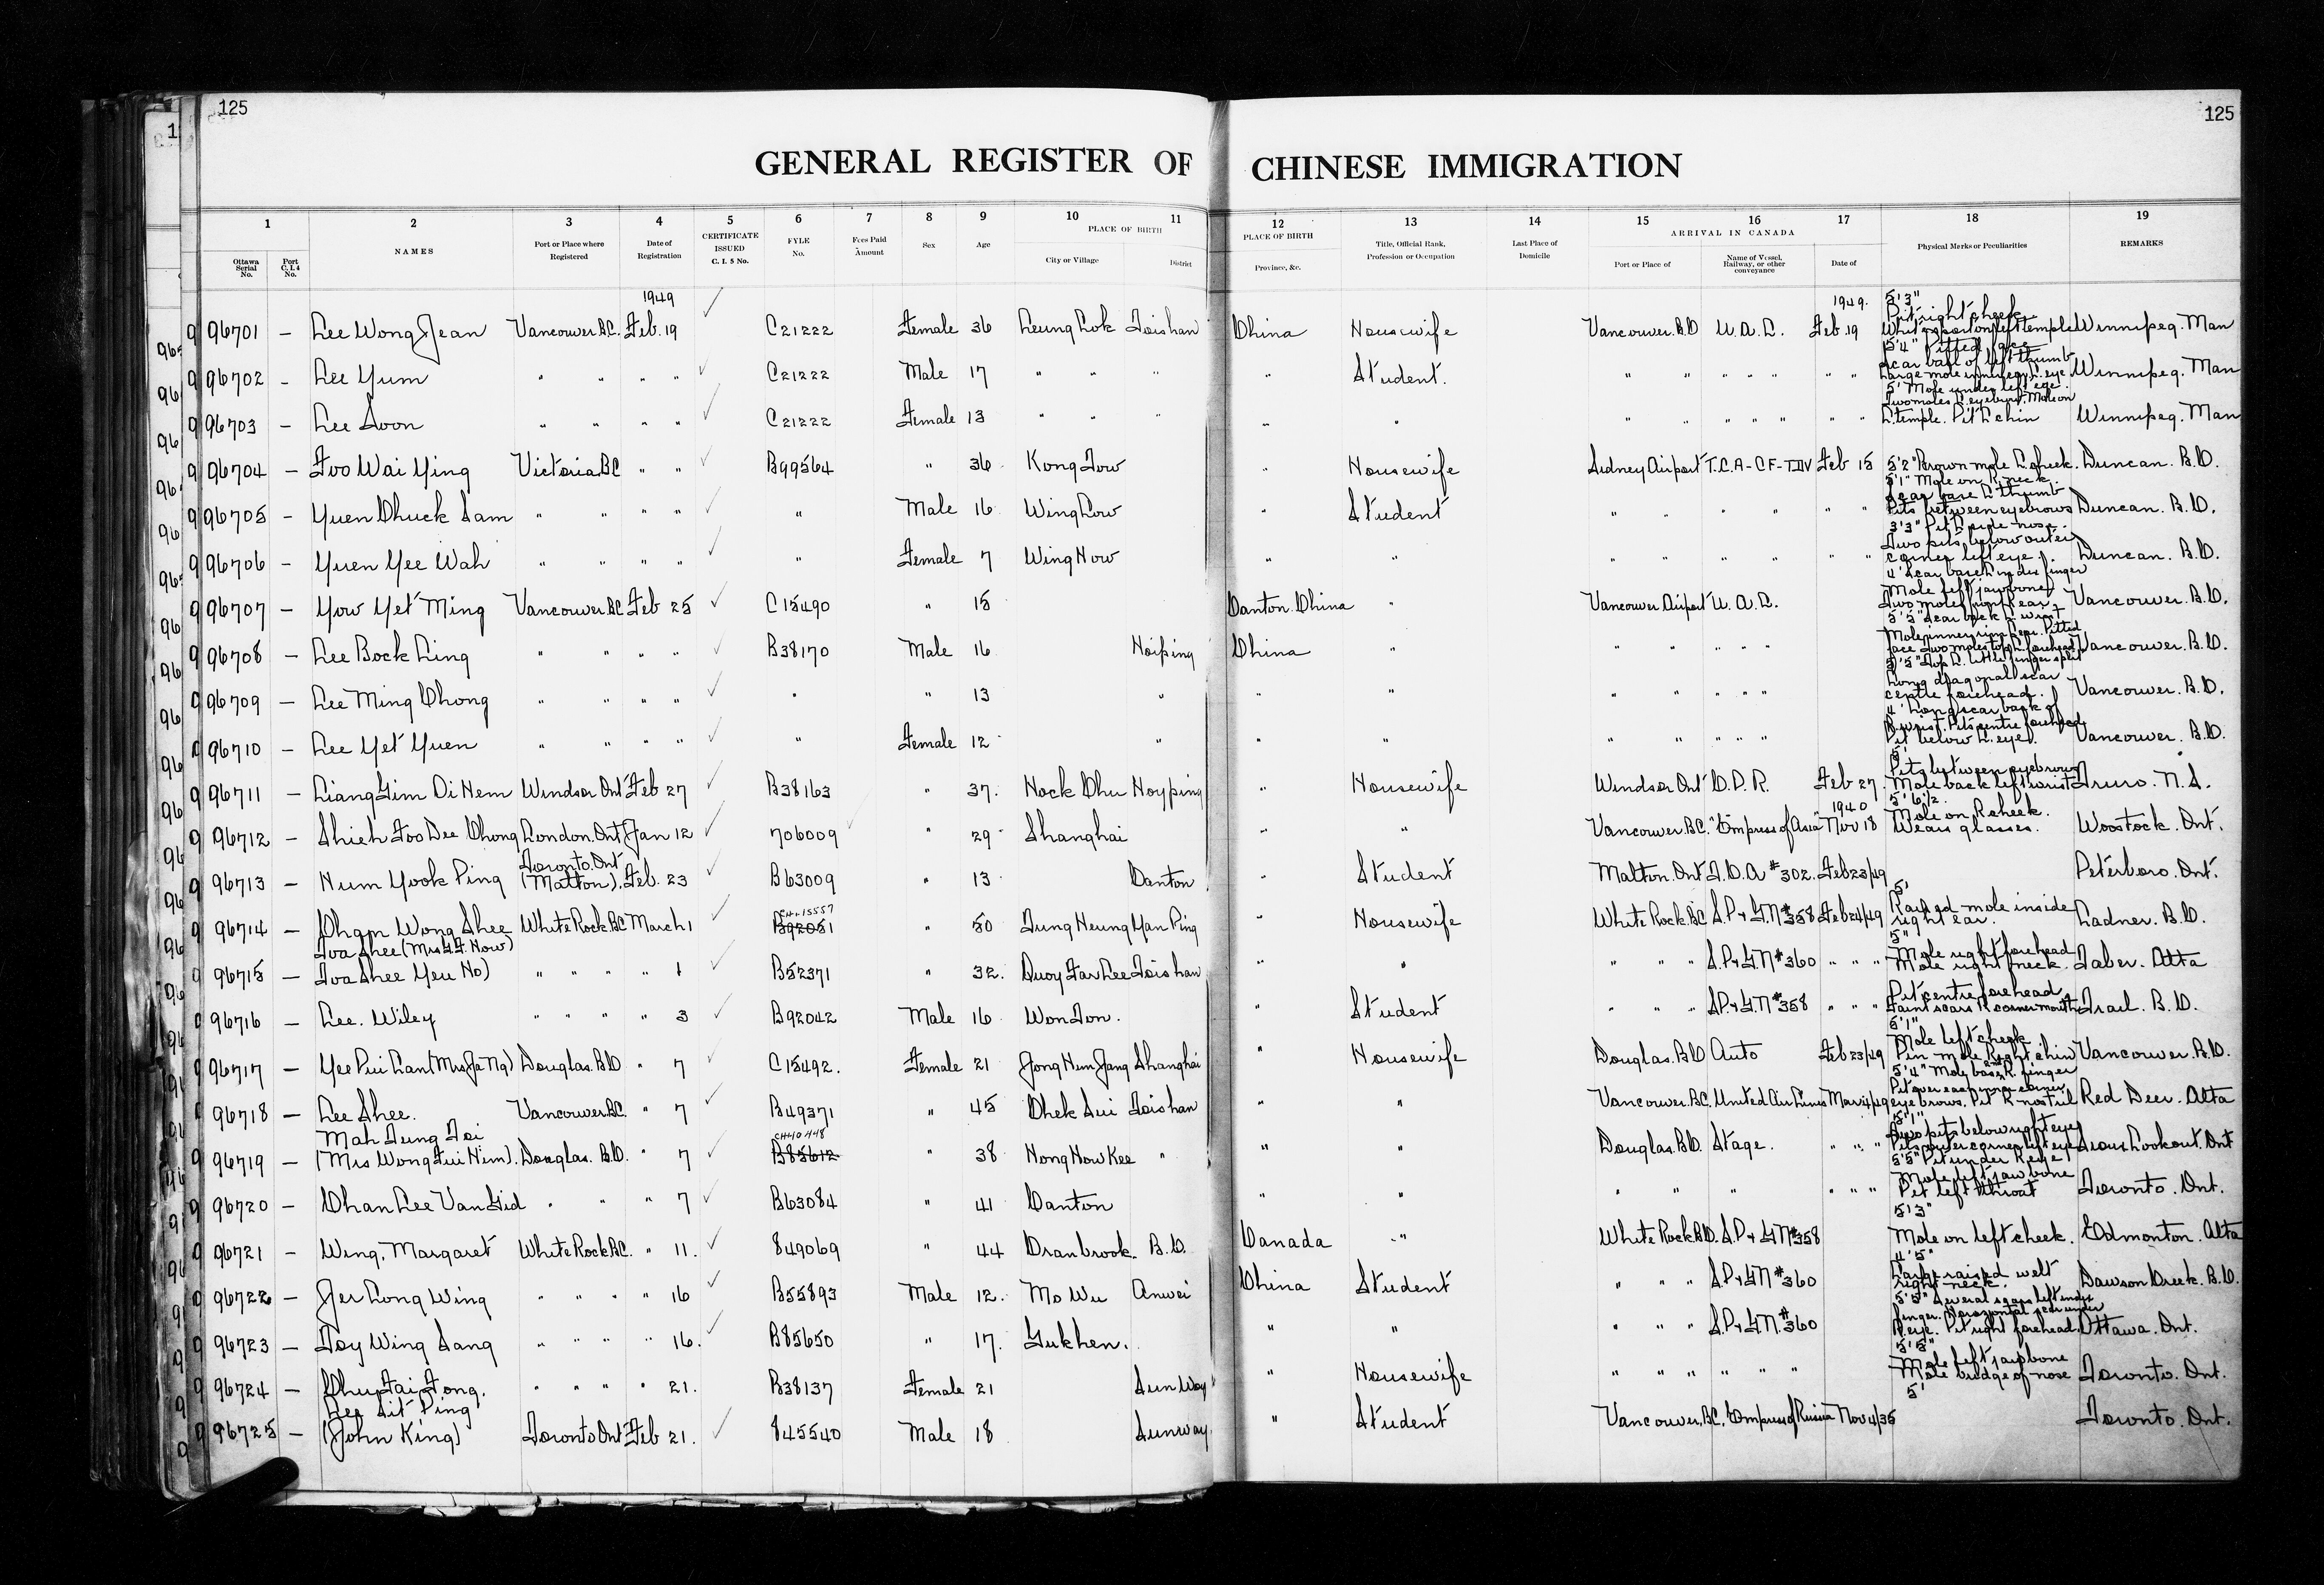 125
125
GENERAL REGISTER OF CHINESE IMMIGRATION
1 2 3 4 5 6 7 8 9 10 11 12 13 14 15 16 17 18 19
Ottawa Serial No. Port C.I.4 No. NAMES Port or Place where Registered Date of Registration CERTIFICATE ISSUED C. I. 5 No. FYLE No. Fees Paid Amount Sex Age PLACE OF BIRTH City or Village District PLACE OF BIRTH Province, &c. Title, Official Rank, Profession or Occupation Last Place of Domicile ARRIVAL IN CANADA Port or Place of Name of Vessel, Railway, or other conveyance Date of Physical Marks or Peculiarities REMARKS
1949 1949.
96701 – Lee Wong Jean Vancouver B.C. Feb. 19 ✓ C21222 Female 36 Leung Lok Toishan China Housewife Vancouver. B.C. U. A. L. Feb. 19 5'3" Pit right cheek Winnipeg. Man
96702 – Lee Yum " " " " ✓ C21222 Male 17 " " " " Student. " " " " " " " 5'4" Pitted face Scar ball of left thumb Winnipeg. Man
96703 – Lee Soon " " " " ✓ C21222 Female 13 " " " " " " " " " " " " 5' Mole under left eye. L. temple. Pit L chin Winnipeg. Man
96704 – Foo Wai Ying Victoria B.C " " ✓ B99564 " 36 Kong Tow " Housewife Sidney Airport T.C.A - CF- Feb 15 5'2" Brown mole L. cheek. Duncan. B.C.
96705 – Yuen Chuck Sam " " " " ✓ " Male 16 Wing Low " Student " " " " " " 5'1" Mole on R. neck. Scar base L thumb Pits between eyebrows Duncan. B.C.
96706 – Yuen Yee Wah " " " " ✓ " Female 7 Wing How " " " " " " " " 3'3" Pit L side nose. Two pits below outer corner left eye. Duncan. B.C.
96707 – Yow Yet Ming Vancouver B.C Feb 25 ✓ C15490 " 15 Canton. China " Vancouver Airport U. A. L. 4' Scar base L index finger Mole left jawbone Vancouver. B.C.
96708 – Lee Bock Ling " " " " ✓ B38170 Male 16 Hoiping China " " " " " " 5'5" Scar back L. wrist Vancouver. B.C.
96709 – Lee Ming Chong " " " " ✓ " " 13 " " " " " " " " 5'5" Top L. little finger split Long diagonal scar centre forehead. Vancouver. B.C.
96710 – Lee Yet Yuen " " " " ✓ " Female 12 " " " " " " " " 4' Long scar back of R. wrist. Pits centre forehead Pit below L. eye. Vancouver. B.C.
96711 – Liang Gim Oi Hem Windsor Ont Feb 27 ✓ B38163 " 37. Hock Chu Hoyping " Housewife Windsor Ont C. P. R. Feb 27. 5' Pits between eyebrows Mole back left wrist Truro. N. S.
96712 – Shieh Foo Dee Chong London. Ont Jan 12 ✓ 706009 ✓ " 29 Shanghai " " Vancouver B.C. "Empress of Asia" 1940 Nov 18 5' 6½. Mole on R. cheek. Wears glasses. Woostock. Ont.
96713 – Hum Yook Ping Toronto. Ont (Malton). Feb. 23 ✓ B63009 " 13 Canton " Student Malton. Ont T.C.A #302. Feb 23/49 Peterboro. Ont.
96714 – Cham Wong Shee White Rock. B.C March 1 ✓ B92051 " 50 Tung Heung Yan Ping " Housewife White Rock. B.C S.P. & G.N #358 Feb 24/49 5' Raised mole inside right ear. Ladner. B.C.
96715 – Iva Shee (Mrs G.F. How) Iva Shee Yeu No) " " " " 1 ✓ B52371 " 32. Quoy Far Lee Toishan " " " " " S.P. & G.N #360 " " " 5" Mole right forehead Mole right neck. Taber. Alta
96716 – Lee. Wiley " " " " 3 ✓ B92042 Male 16 Won Ton. " Student " " " S.P. & G.N #358 " " " Pit centre forehead Faint scars R corner mouth Trail. B. C.
96717 – Yee Pui Lan (Mrs Ja Ng) Douglas. B.C. " 7 ✓ C15492. Female 21 Jong Hem Jang Shanghai " Housewife Douglas. B.C Auto Feb 23/49 5'1" Mole left cheek Pin mole Right chin Vancouver. B.C.
96718 – Lee Shee. Vancouver B.C. " 7 ✓ B49371 " 45 Chek Sui Toishan " " Vancouver. B.C. United Air Lines Mar 4/49 5'4" Mole base R. finger eyebrows. Pit R nostril Red Deer. Alta
96719 – Mah Tung Toi (Mrs Wong Fui Him). Douglas. B.C. " 7 ✓ CH40448 B85612 " 38 Hong How Kee " " " Douglas. B.C. Stage. " " " 5'1" Two pits below right eye Pits outer corner left eye Sioux Lookout. Ont
96720 – Chan Lee Van Gid " " " 7 ✓ B63084 " 41 Canton " " " " " " " " 5'5" Pit under R. eye Mole left jaw bone Pit left throat Toronto. Ont.
96721 – Wing, Margaret White Rock B.C. " 11. ✓ 849069 " 44 Cranbrook. B.C. Canada " White Rock B.C. S.P. & G.N #358 5'3" Mole on left cheek. Edmonton. Alta
96722 – Jer Long Wing " " " " 16 ✓ B55893 Male 12. Mo Wu Anwei China Student " " " S.P. & G.N #360 4'5" Large raised welt right neck. Dawson Creek. B.C.
96723 – Toy Wing Sang " " " " 16. ✓ B85650 " 17. Gukhen. " " " " " S.P. & G.N. #360 5'5" Several scars left index finger. Horizontal scar under R. eye. Pit right forehead. Ottawa. Ont.
96724 – Chu Fai Fong. " " " " 21. B38137 Female 21 Sun Woy " Housewife " " " " " " 5'5" Mole left jawbone Mole bridge of nose Toronto. Ont.
96725 – Lee Sit Ping (John King) Toronto Ont Feb 21. ✓ 845540 Male 18 Sunway " Student Vancouver, B.C. "Empress of Russia Nov 4/35 5' Toronto. Ont.